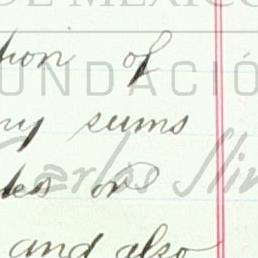 DE MEXICO
tion of
FUNDACIÓ
ny sums
Carlos Slim
or
and also